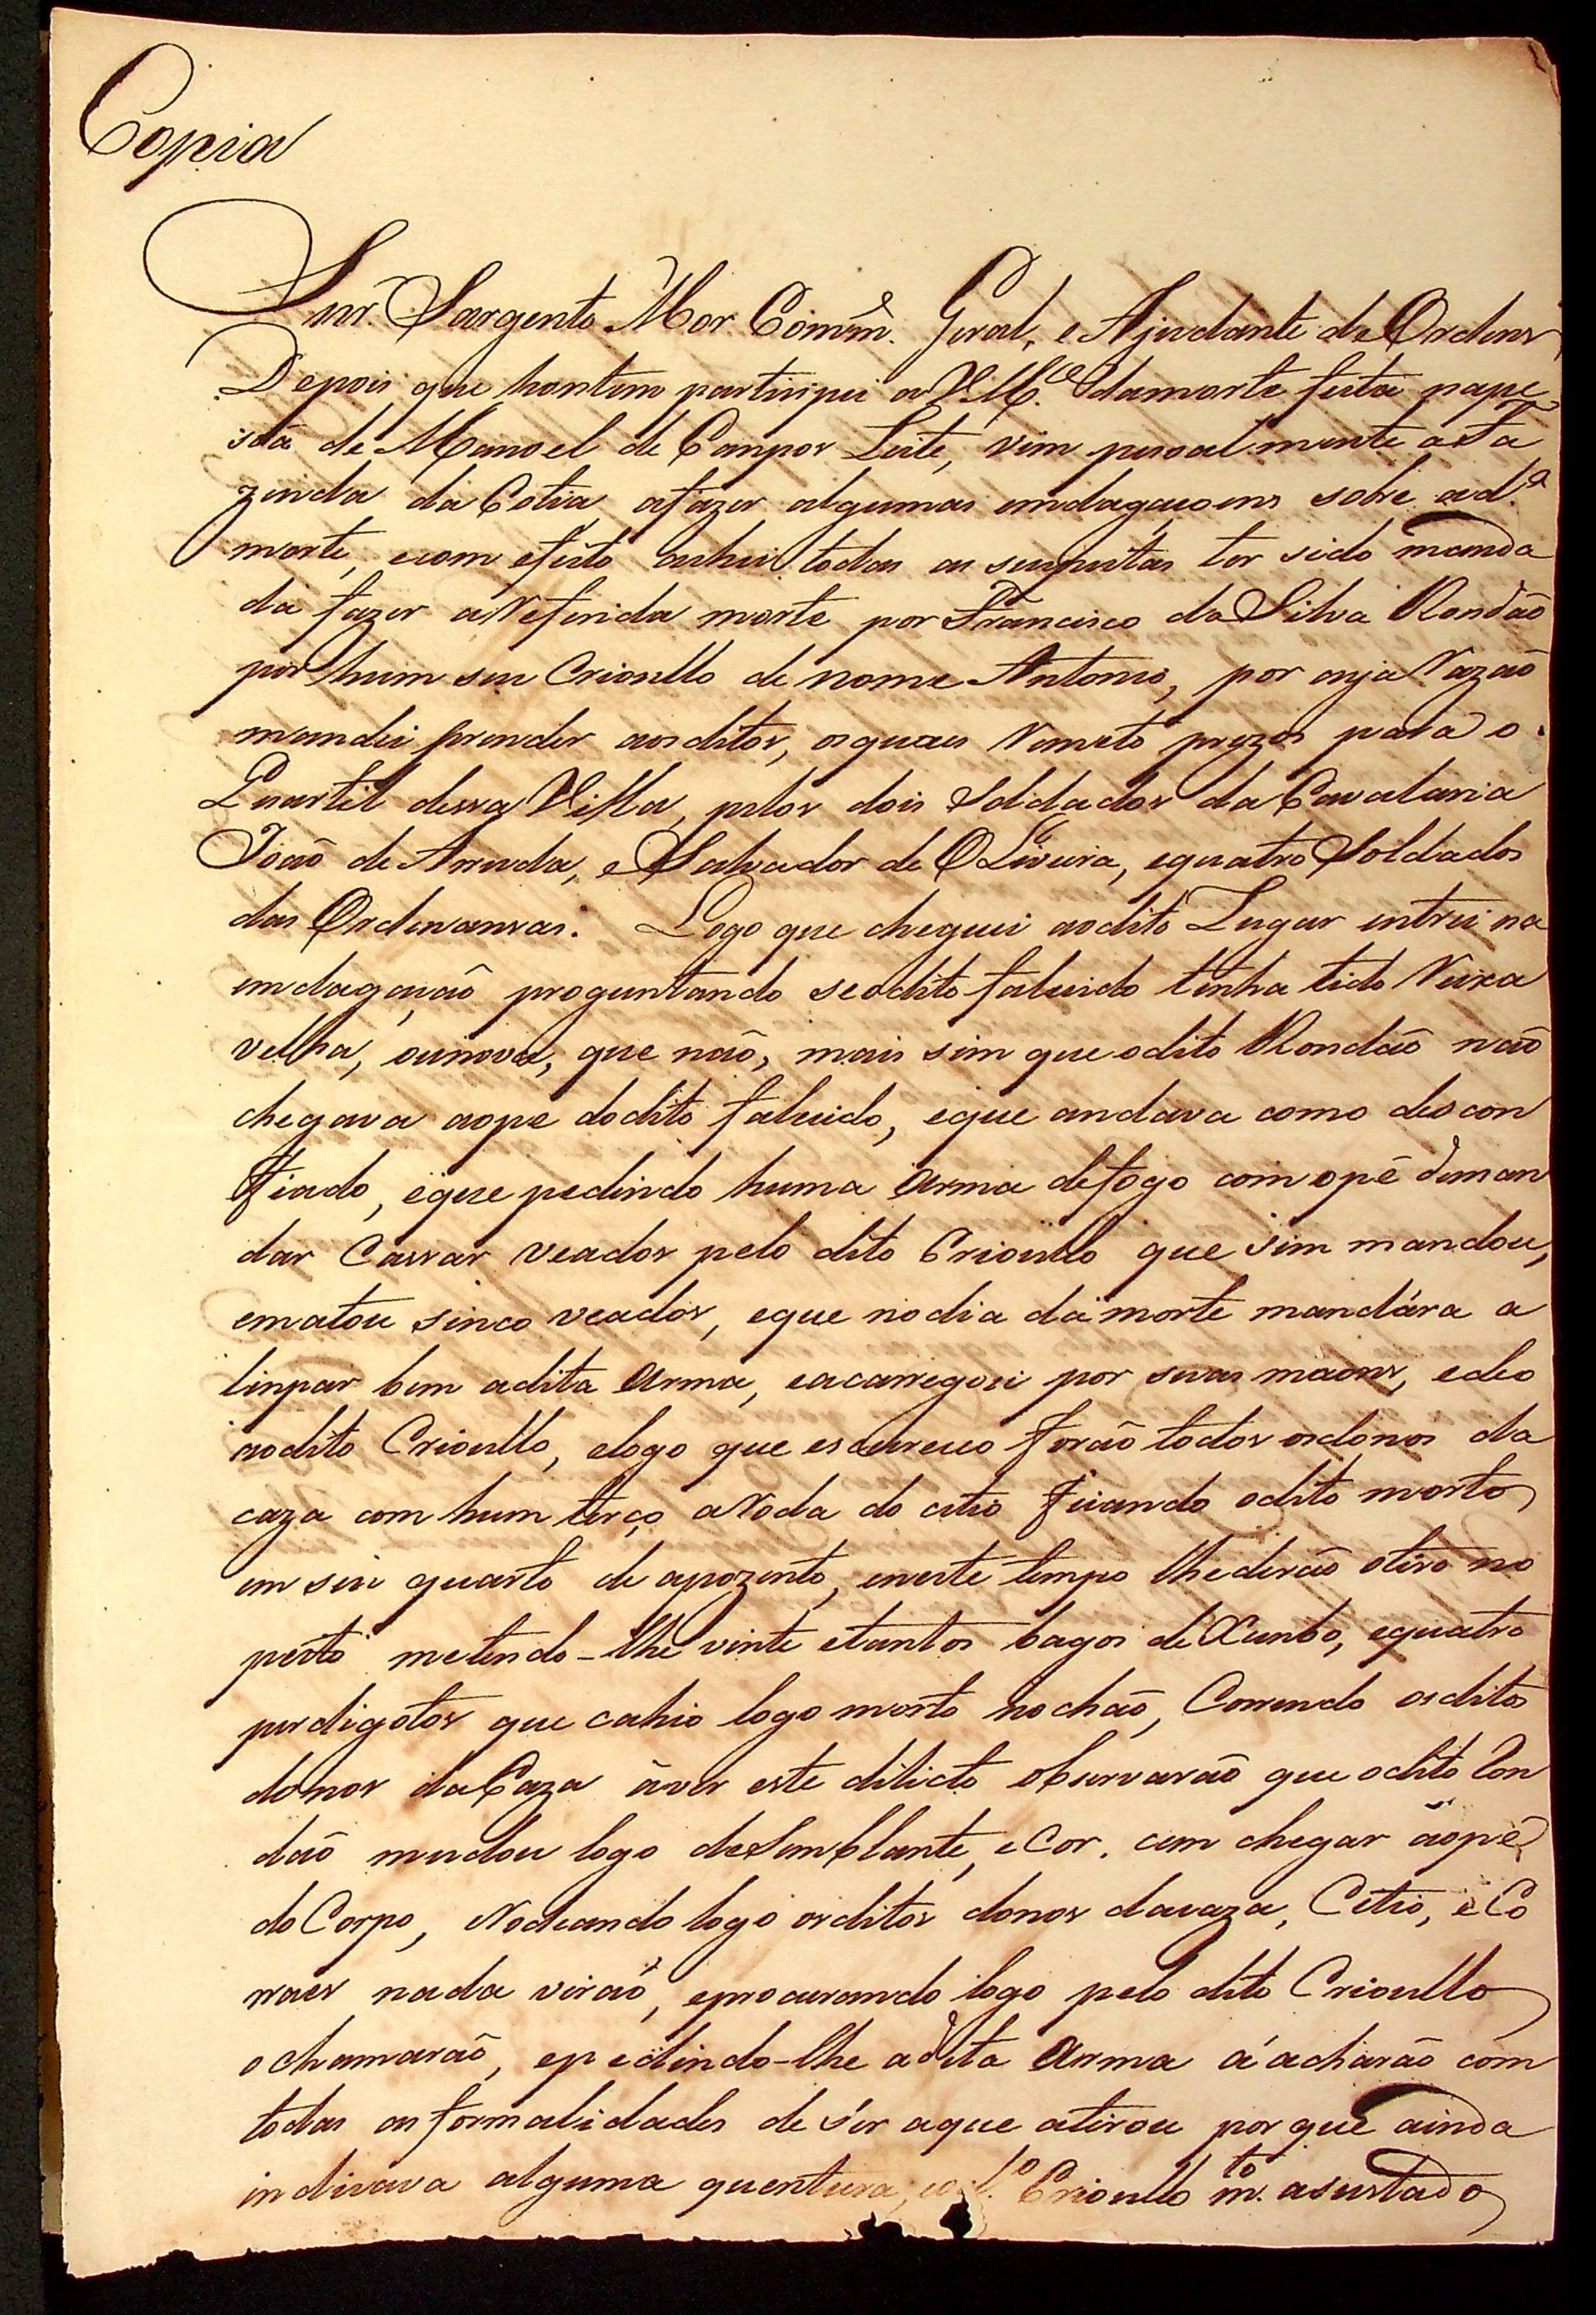 Copia
Snr. Sargento Mor Comm.e Geral, e Ajudante de Ordens
Depois que hontem partisipei a VM.ce damorte feita nape
soa de Manoel de Campos Leite, vim pesoal mente a Fa
zenda da Cotia afazer algumas emdagacoens sobre ad.a
morte, ecom efeito achei todas as suspeitas ter sido manda
da fazer aReferida morte por Francisco da Silva Rondão
por hum seu Crioullo de nome Antonio, por cuja Razaõ
mandei prender aos ditos, osquaes Remeto prezos para o
Quartel dessa Villa, pelos dois Soldados da Cavalaria
Joaõ de Arruda, e Salvador de OLiveira, equatro Soldados
das Ordenansas. Logo que cheguei aodito Lugar entrei na
emdagacaõ proguntando seodito falecido tinha tido Reixa
velha, ounova, que naõ, mais sim que odito Rondaõ naõ
chegava aope dodito falecido, eque andava como descon
fiado, eque pedindo huma Arma defogo comopê deman
dar Cassar veados pelo dito Crioullo que sim mandou,
ematou sinco veados, eque nodia da morte mandára a
linpar bem adita Arma, eacarregou por suas maons, edeo
aodito Crioullo, elogo que escureceo foraõ todos osdonos da
caza com hum terço aRoda do citio ficando odito morto
em seu quarto de apozento, eneste tempo lhederaõ otiro no
peito metendo-lhe vinte etantos bagos de Xunbo, equatro
perdigotos que cahio logo morto nochaõ, Correndo osditos
donos daCaza áver este dilicto observaraõ que odito Ron
daõ mudou logo deSemblante, eCor. cem chegar áopê
do Corpo, Rodeando logo osditos donos dacaza, Citio, eCo
rraes nada viraõ, eprocurando logo pelo dito Crioullo
ochamaraõ, epedindo-lhe adita Arma á acharaõ com
todas asformalidades de sér aque atirou por que ainda
indicava alguma quentura, Crioullo m.to asustado